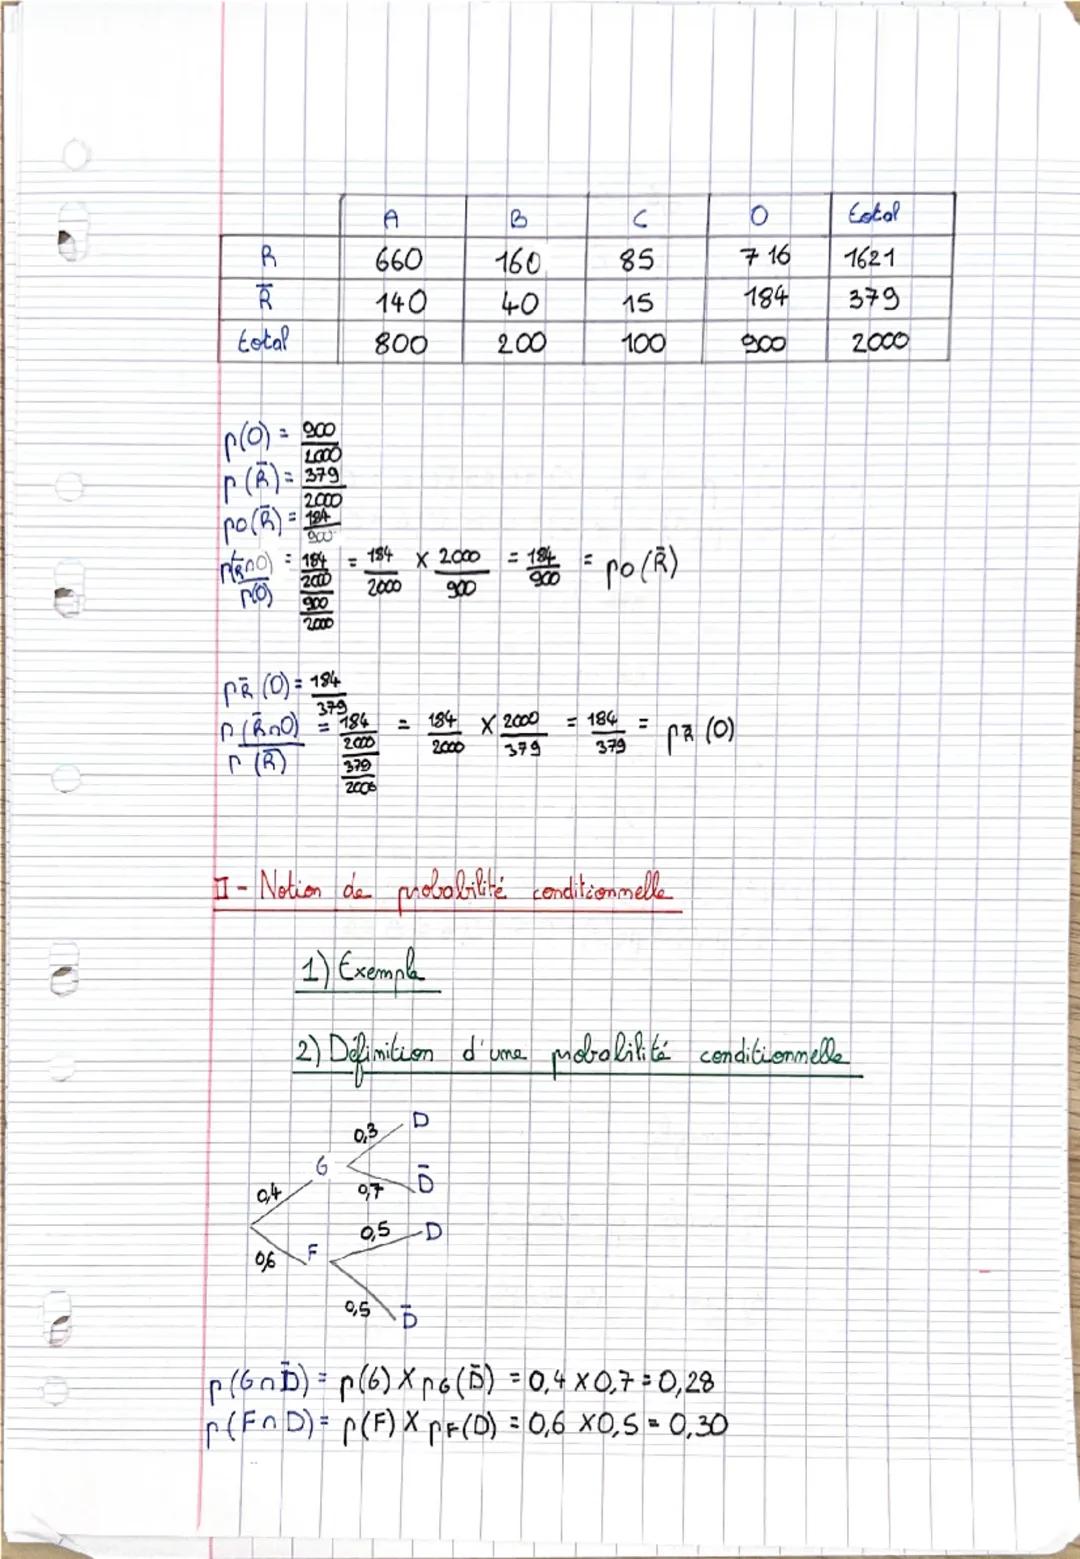 A B C O total
R 660 160 85 716 1621
R̅ 140 40 15 184 379
total 800 200 100 900 2000
p(O) = 900/2000
p(R̅) = 379/2000
pO(R̅) = 184/900
p(R̅∩O)/p(O) = (184/2000)/(900/2000) = 184/2000 × 2000/900 = 184/900 = pO(R̅)
pR̅(O) = 184/379
p(R̅∩O)/p(R̅) = (184/2000)/(379/2000) = 184/2000 × 2000/379 = 184/379 = pR̅(O)
II - Notion de probabilité conditionnelle
1) Exemple
2) Définition d'une probabilité conditionnelle
0,3 D
G
0,4 0,7 D̅
0,5 D
0,6 F
0,5 D̅
p(G∩D̅) = p(G) × pG(D̅) = 0,4 × 0,7 = 0,28
p(F∩D) = p(F) × pF(D) = 0,6 × 0,5 = 0,30